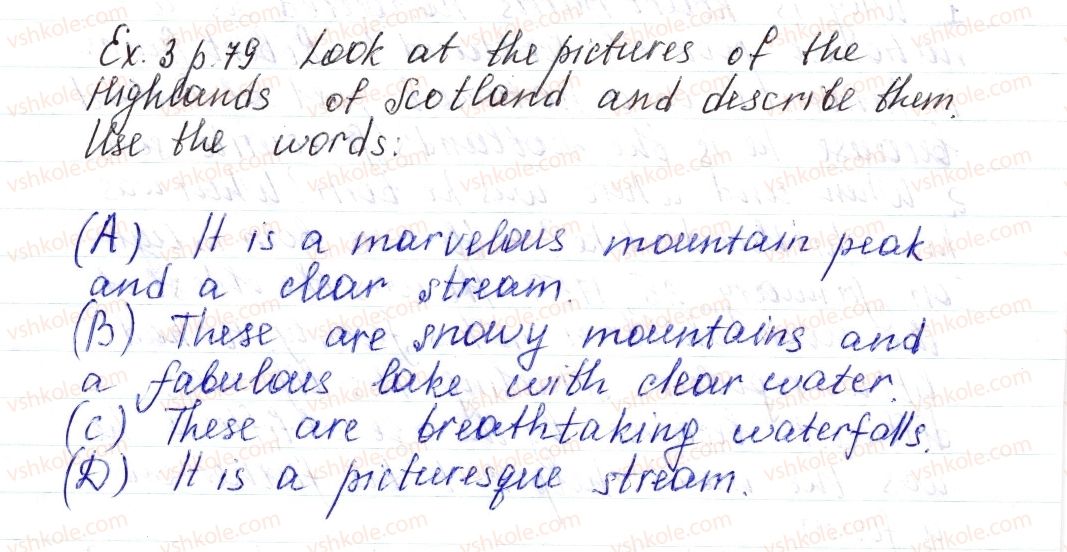 Ex. 3 p. 79 Look at the pictures of the
Highlands of Scotland and describe them.
Use the words:
(A) It is a marvelous mountain peak
and a clear stream.
(B) These are snowy mountains and
a fabulous lake with clear water.
(C) These are breathtaking waterfalls.
(D) It is a picturesque stream.